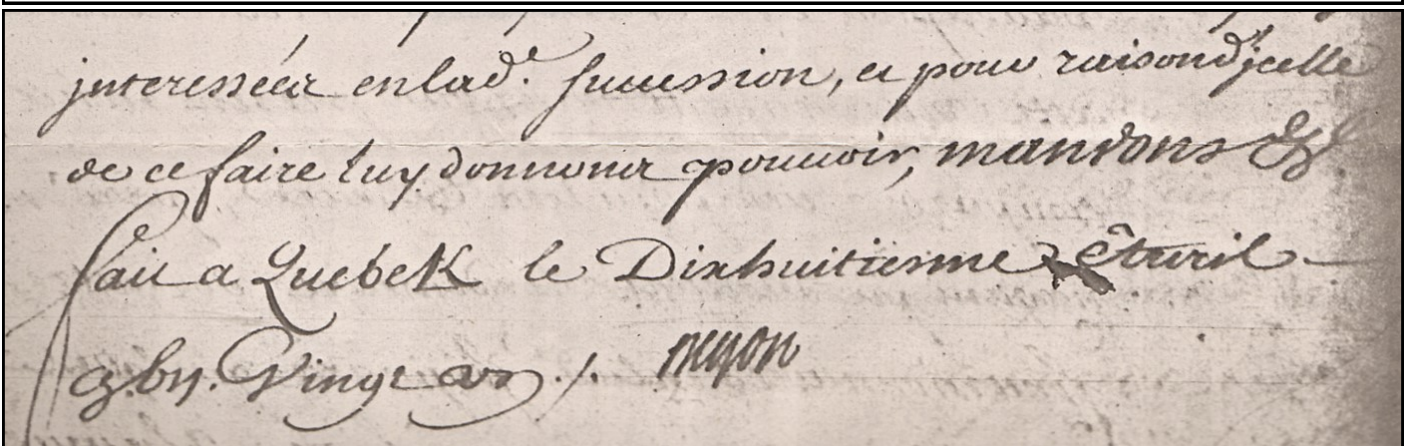 interesséés en lad.e sucession, et pour raison d'jcelle
de ce faire luy donnons pouvoir, mandons &c
fait a Quebek le Dixhuitiesme Avril
Vingt